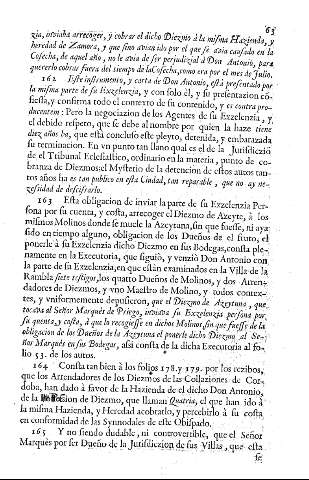 63
zia, inviaba arrecoger, y cobrar el dicho Diezmo à la misma Hazienda, y
heredad de Zamora, y que sino avian ido por el que se avia causado en la
Cosecha, de aquel año, no le avia de ser perjudicial à Don Antonio, para
quererlo cobrar fuera del tiempo de la Cosecha, como era por el mes de Julio.
162 Este instrumento, y carta de Don Antonio, està presentado por
la misma parte de su Exzelenzia, y con solo èl, y su presentazion cõ-
fiessa, y confirma todo el contexto de su contenido, y es contra pro-
ducentem: Pero la negociacion de los Agentes de su Exzelenzia, y
el debido respeto, que se debe al nombre por quien la haze tiene
diez años ha, que està concluso este pleyto, detenida, y embarazada
su terminacion. En vn punto tan llano qual es el de la Jurisdiccio
de el Tribunal Eclesiastico, ordinario en la materia, punto de co-
branza de Diezmos: el Mysterio de la detencion de estos autos tan-
tos años ha es tan publico en esta Ciudad, tan reparable, que no ay ne-
zessidad de descifrarlo.
163 Esta obligacion de inviar la parte de su Exzelenzia Per-
sona por su cuenta, y costa, arrecoger el Diezmo de Azeyte, à los
mismos Molinos donde se muele la Azeytuna, sin que fuesse, ni aya
sido en tiempo alguno, obligacion de los Dueños de el fruto, el
ponerle à su Exzelenzia dicho Diezmo en sus Bodegas, consta ple-
namente en la Executoria, que siguiò, y venziò Don Antonio con
la parte de su Exzelenzia, en que estàn examinados en la Villa de la
Rambla siete testigos, los quatro Dueños de Molinos, y dos Arren-
dadores de Diezmos, y vno Maestro de Molino, y todos contex-
tes, y vniformemente depusieron, que el Diezmo de Azeytuna, que
tocava al Señor Marquès de Priego, inviava su Exzelenzia persona por
su quenta, y costa, à que la recogiesse en dichos Molinos, sin que fuesse de la
obligacion de los Dueños de la Azeytuna el ponerle dicho Diezmo al Se-
ñor Marquès en sus Bodegas, assi consta de dicha Executoria al fo-
lio 53. de los autos.
164 Consta tan bien à los folios 178. y 179. por los rezibos,
que los Arrendadores de los Diezmos de las Collaziones de Cor-
doba, han dado à favor de la Hazienda de el dicho Don Antonio,
de la Porcion de Diezmo, que llaman Quatria, el que han ido à
la misma Hazienda, y Heredad acobrarlo, y percebirlo à su costa
en conformidad de las Synnodales de este Obispado.
165 Y no siendo dudable, ni controvertible, que el Señor
Marquès por ser Dueño de la Jurisdiczion de sus Villas, que esta
se